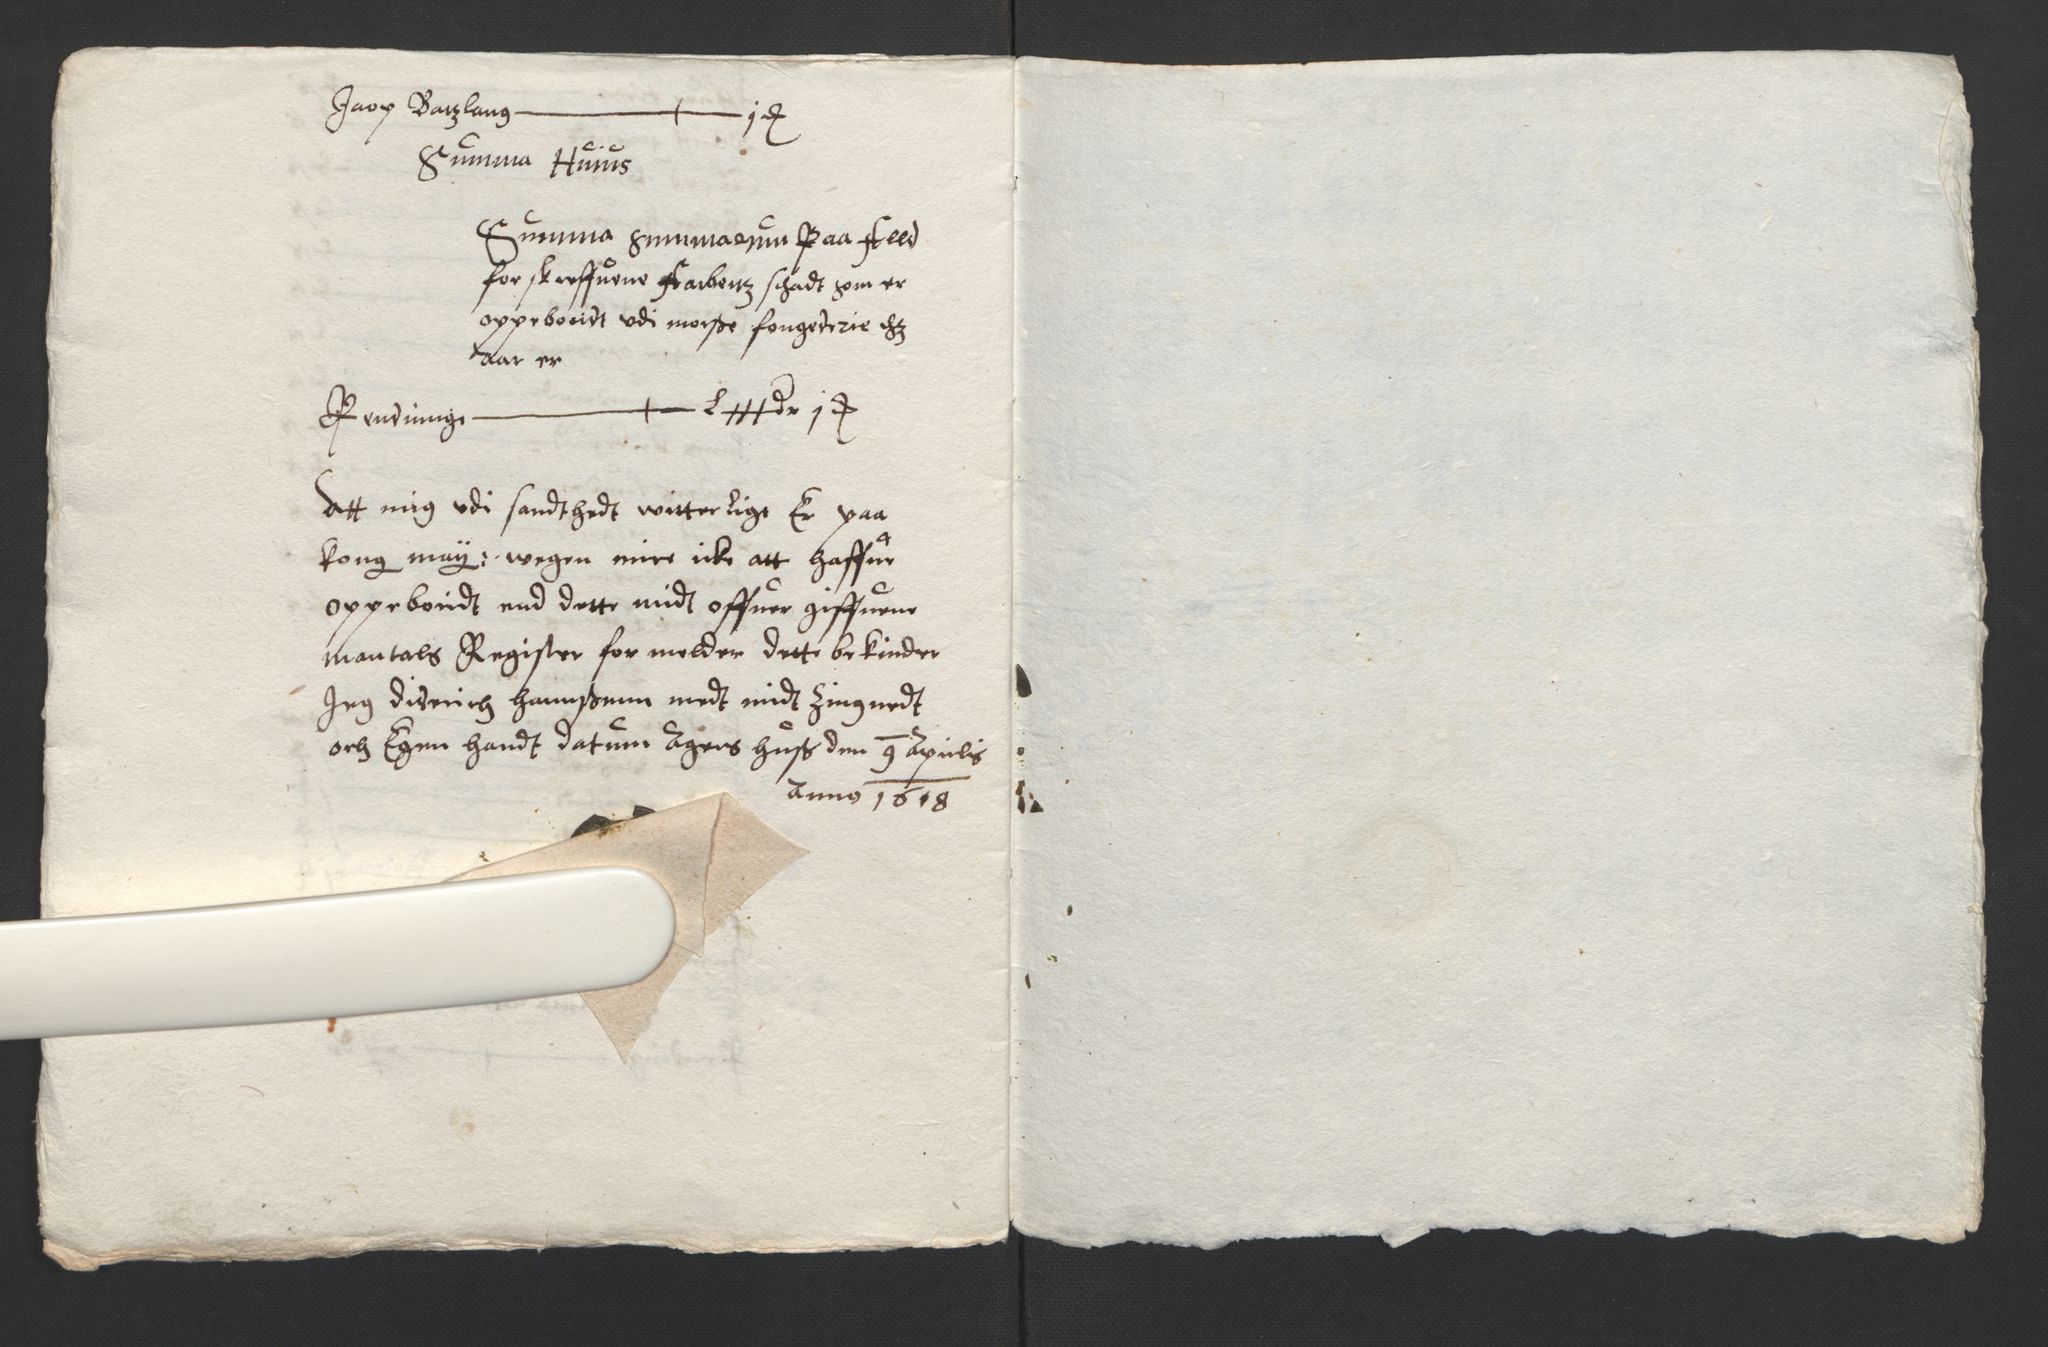 Jaop Barzlaug 1 ƌ
Summa Huius
Summa Summarum Paa Alld
for skreffuene Arbeitz schadt som er
oppeboridt vdi morsse fougederie dz
aar er
Pendinnge 1 ƌ
Att mig vdi sandthedt witterligt Er paa
kong: may: wegen mire icke att haffue
oppeboridt end dette midt offuer giffuene
mantals Register for melder dette bekinder
Jeg diderich hannssenn medt midt Zingnedt
och Egen handt datum Agers huss den 9 Aprilis
Anno 1618